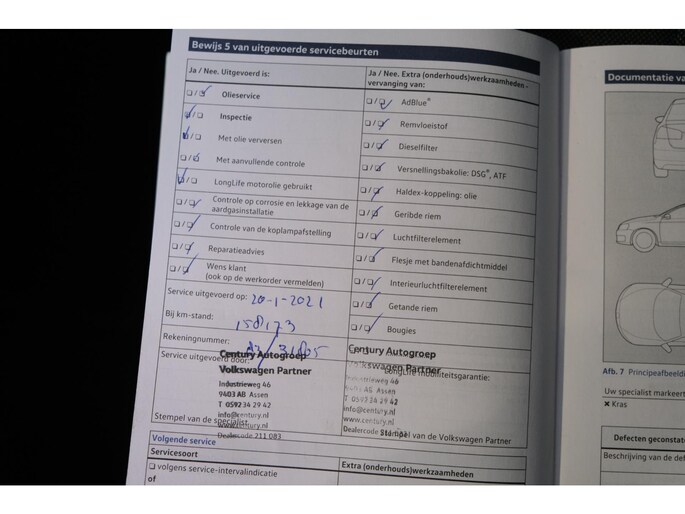 Bewijs 5 van uitgevoerde servicebeurten
Ja / Nee. Uitgevoerd is:
Ja / Nee. Extra (onderhouds)werkzaamheden - vervanging van:
☐/☐ Olieservice
☐/☐ AdBlue®
☐/☐ Inspectie
☐/☐ Remvloeistof
☐/☐ Met olie verversen
☐/☐ Dieselfilter
☐/☐ Met aanvullende controle
☐/☐ Versnellingsbakolie: DSG®, ATF
☐/☐ LongLife motorolie gebruikt
☐/☐ Haldex-koppeling: olie
☐/☐ Controle op corrosie en lekkage van de
aardgasinstallatie
☐/☐ Geribde riem
☐/☐ Controle van de koplampafstelling
☐/☐ Luchtfilterelement
☐/☐ Reparatieadvies
☐/☐ Flesje met bandenafdichtmiddel
☐/☐ Wens klant
(ook op de werkorder vermelden)
☐/☐ Interieurluchtfilterelement
☐/☐ Getande riem
☐/☐ Bougies
Service uitgevoerd op: 20-1-2021
Bij km-stand: 158173
Rekeningnummer:
Service uitgevoerd door:
Century Autogroep
Volkswagen Partner
Industrieweg 46
9403 AB Assen
T 0592 34 29 42
info@century.nl
www.century.nl
Dealercode 211 083
Stempel van de specialist
Century Autogroep
Volkswagen Partner
LongLife mobiliteitsgarantie:
Industrieweg 46
Assen
T 0592 34 29 42
info@century.nl
www.century.nl
Dealercode
Stempel van de Volkswagen Partner
Volgende service
Servicesoort
Extra (onderhouds)werkzaamheden
☐ volgens service-intervalindicatie
of
Documentatie va
Afb. 7 Principeafbeeldi
Uw specialist markeert
✖ Kras
Defecten geconstate
Beschrijving van de def